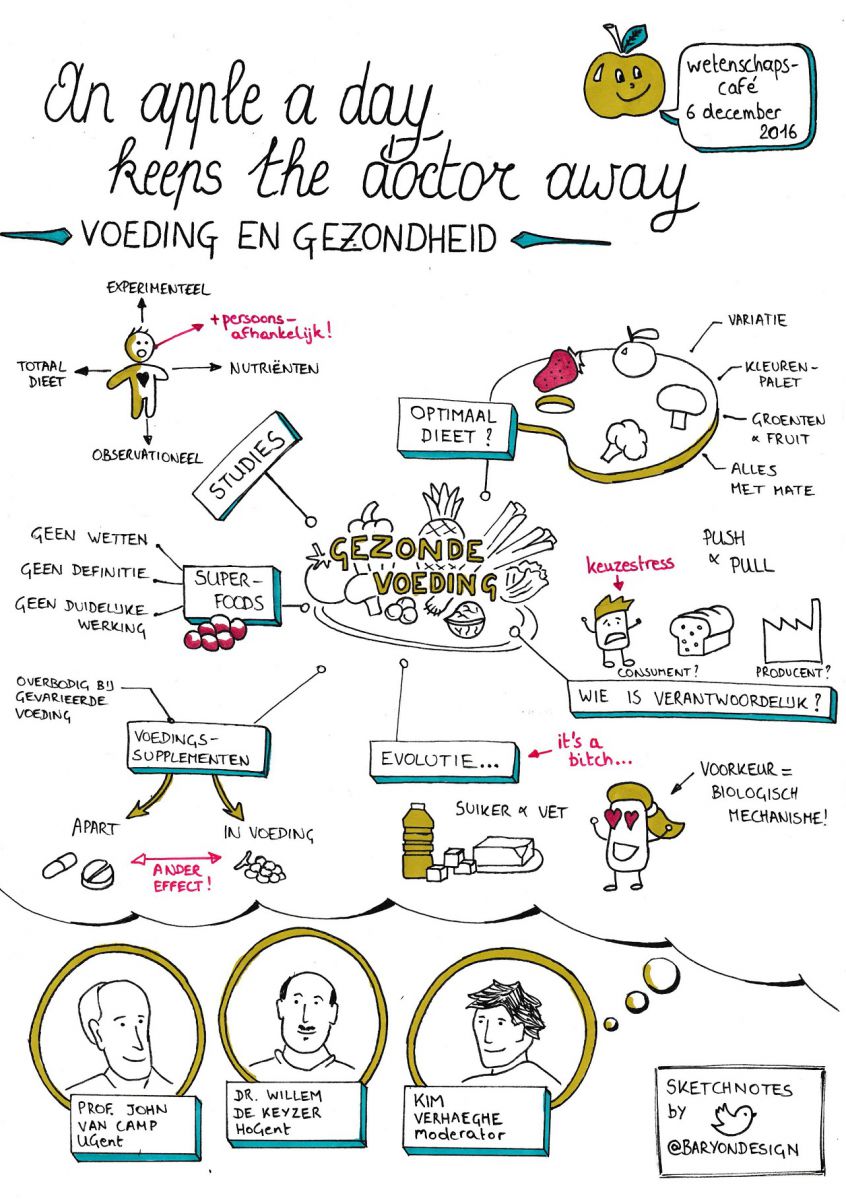 An apple a day
keeps the doctor away
VOEDING EN GEZONDHEID
wetenschaps-
café
6 december
2016
EXPERIMENTEEL
+ persoons-
afhankelijk!
TOTAAL
DIEET
NUTRIËNTEN
OBSERVATIONEEL
STUDIES
OPTIMAAL
DIEET?
VARIATIE
KLEUREN-
PALET
GROENTEN
& FRUIT
ALLES
MET MATE
GEZONDE
VOEDING
GEEN WETTEN
GEEN DEFINITIE
GEEN DUIDELIJKE
WERKING
SUPER-
FOODS
PUSH
& PULL
keuzestress
CONSUMENT?
PRODUCENT?
WIE IS VERANTWOORDELIJK?
OVERBODIG BIJ
GEVARIEERDE
VOEDING
VOEDINGS-
SUPPLEMENTEN
APART
IN VOEDING
ANDER
EFFECT!
EVOLUTIE...
it's a
bitch...
SUIKER & VET
VOORKEUR =
BIOLOGISCH
MECHANISME!
PROF. JOHN
VAN CAMP
UGent
DR. WILLEM
DE KEYZER
HoGent
KIM
VERHAEGHE
Moderator
SKETCHNOTES
by
@BARYONDESIGN